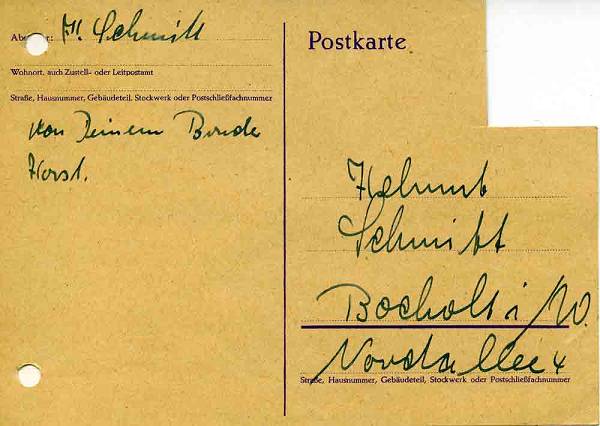 Abs er: H. Schmitt
Wohnort, auch Zustell- oder Leitpostamt
Straße, Hausnummer, Gebäudeteil, Stockwerk oder Postschließfachnummer
von Deinem Bruder
Horst.
Postkarte
Helmut
Schmitt
Bocholt i/W.
Nordallee 4
Straße, Hausnummer, Gebäudeteil, Stockwerk oder Postschließfachnummer